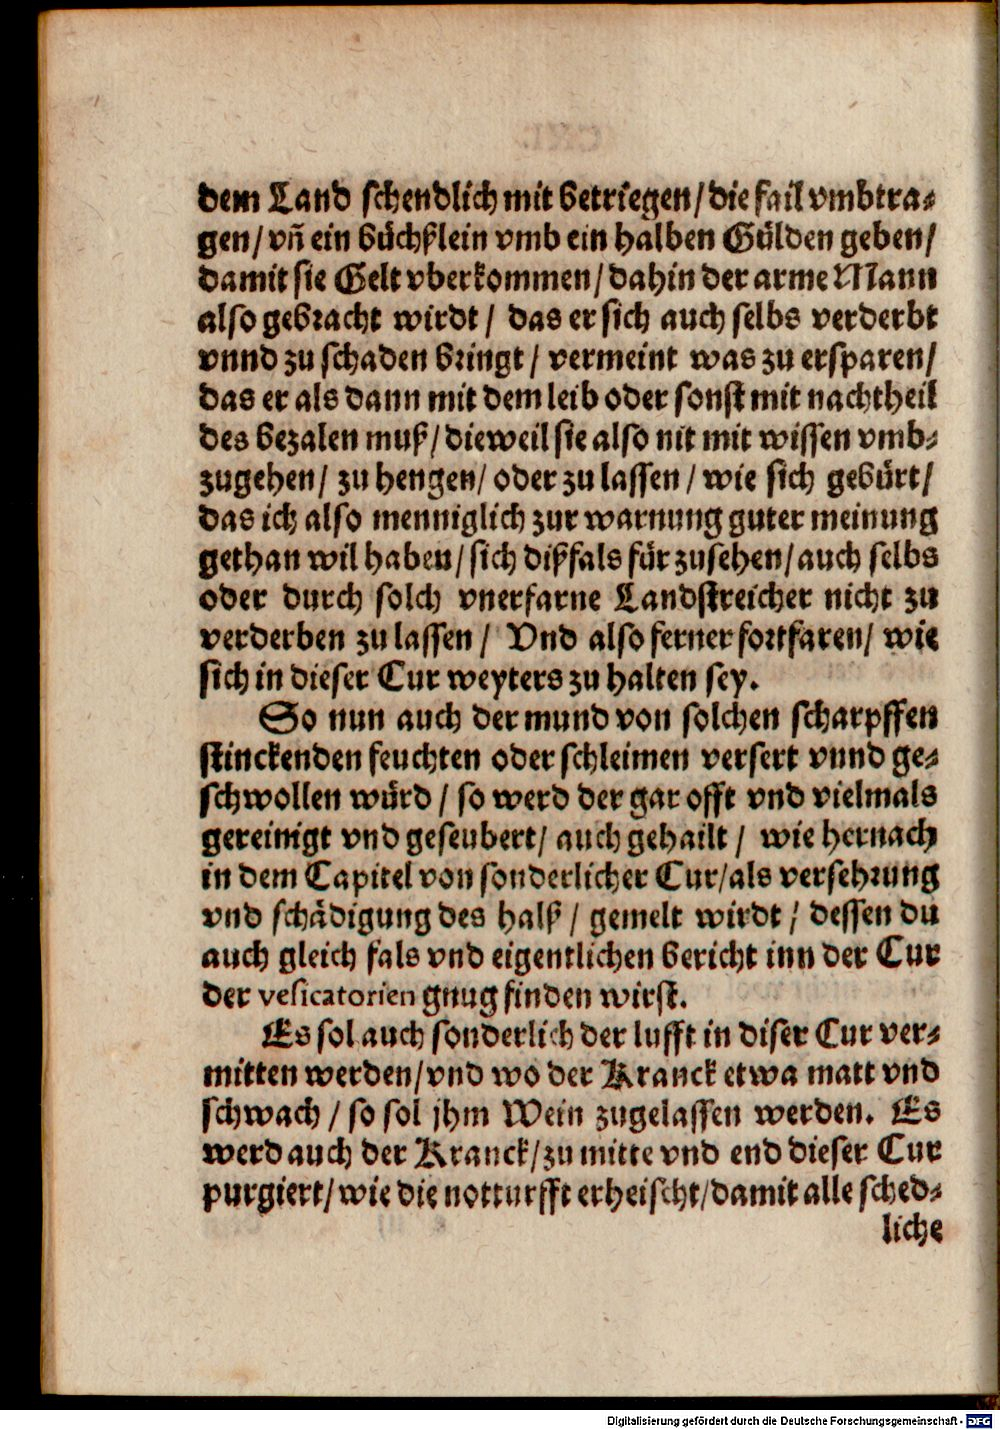 dem Land schendlich mit betriegen/ die fail vmbtra⸗
gen/ vñ ein büchßlein vmb ein halben Gülden geben/
damit sie Gelt vberkommen/ dahin der arme Mann
also gebracht wirdt/ das er sich auch selbs verderbt
vnnd zu schaden bringt/ vermeint was zu ersparen/
das er als dann mit dem leib oder sonst mit nachtheil
des bezalen muß/ dieweil sie also nit mit wissen vmb⸗
zugehen/ zu hengen/ oder zu lassen/ wie sich gebürt/
das ich also menniglich zur warnung guter meinung
gethan wil haben/ sich dißfals für zusehen/ auch selbs
oder durch solch vnerfarne Landstreicher nicht zu
verderben zu lassen/ Vnd also ferner fortfaren/ wie
sich in dieser Cur weyters zu halten sey.
So nun auch der mund von solchen scharpffen
stinckenden feuchten oder schleimen versert vnnd ge⸗
schwollen würd/ so werd der gar offt vnd vielmals
gereinigt vnd geseubert/ auch gehailt/ wie hernach
in dem Capitel von sonderlicher Cur/ als versehrung
vnd schädigung des halß/ gemelt wirdt/ dessen du
auch gleich fals vnd eigentlichen bericht inn der Cur
der vesicatorien gnug finden wirst.
Es sol auch sonderlich der lufft in diser Cur ver⸗
mitten werden/ vnd wo der Kranck etwa matt vnd
schwach/ so sol jhm Wein zugelassen werden. Es
werd auch der Kranck/ zu mitte vnd end dieser Cur
purgiert/ wie die notturfft erheischt/ damit alle sched⸗
liche
Digitalisierung gefördert durch die Deutsche Forschungsgemeinschaft - DFG